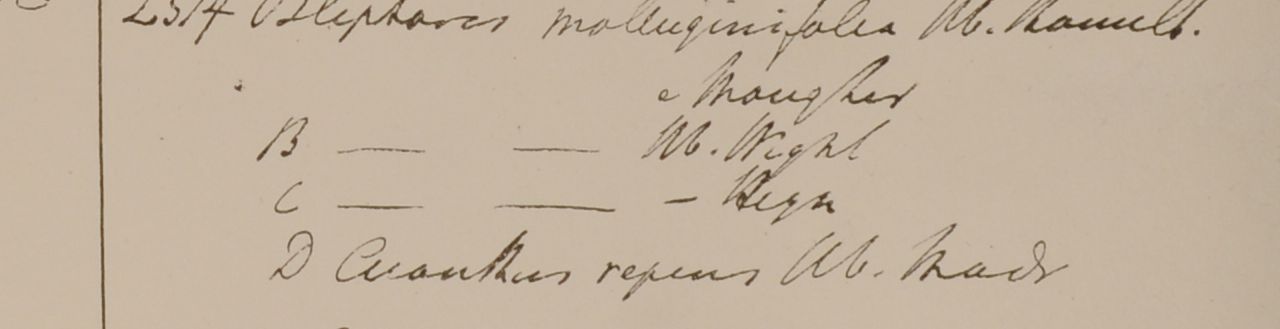 2374 Blepharis molluginifolia Hb. Hamilt.
e Mongher
B — — Hb. Wight
C — — - Heyn
D Acanthus repens Hb. Madr